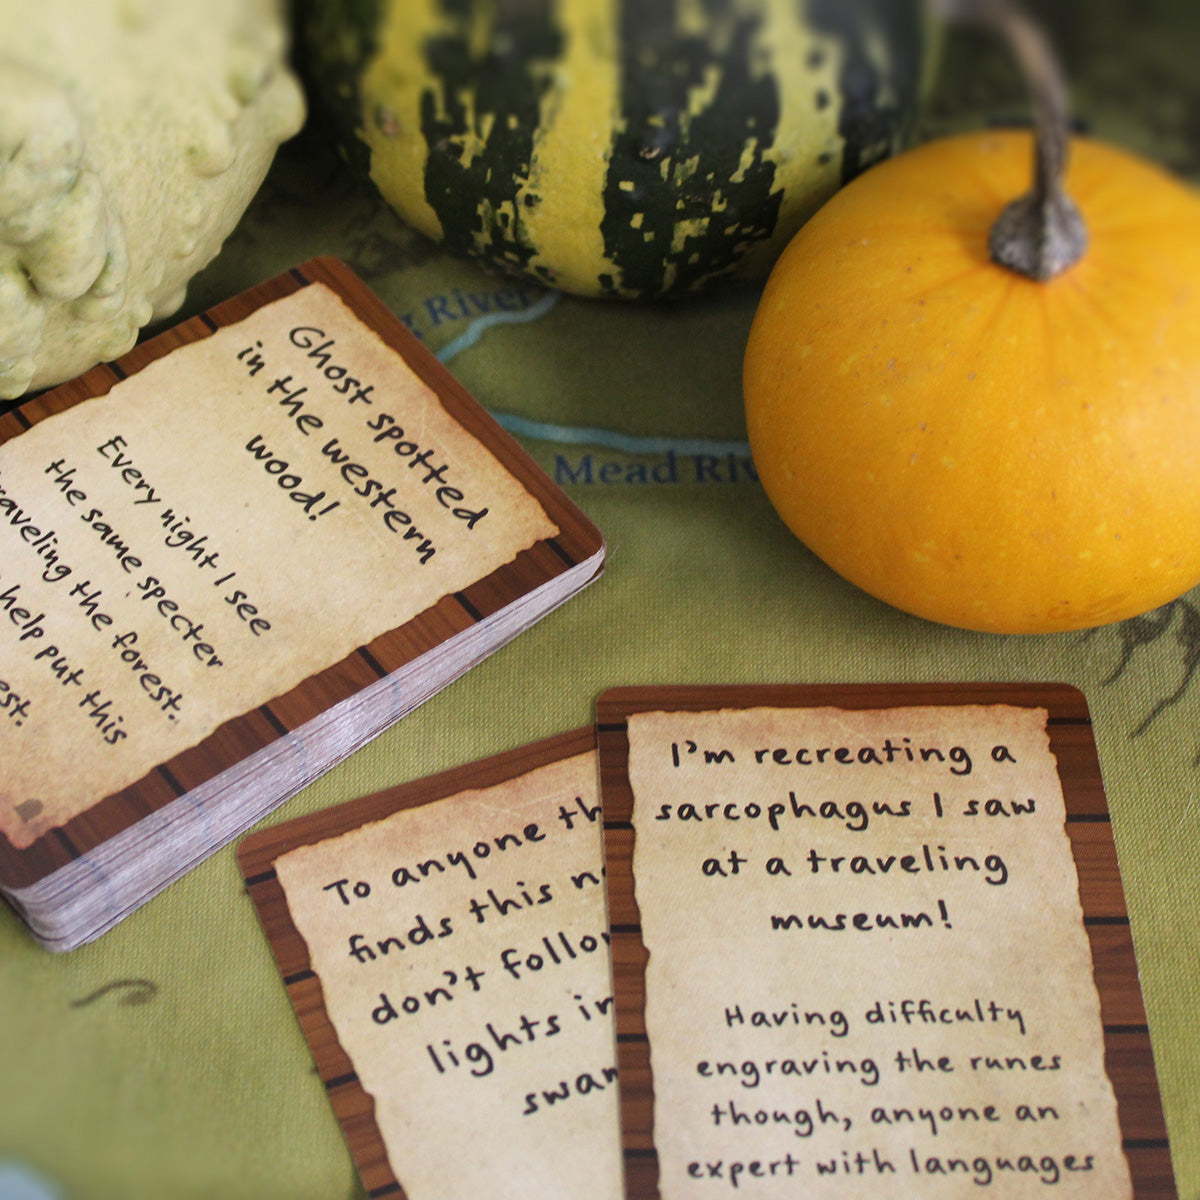 Ghost spotted
in the western
wood!
Every night I see
the same specter
the forest.
help put this
River
Mead
To anyone
finds this
don't
lights
I'm recreating a
sarcophagus I saw
at a traveling
museum!
Having difficulty
engraving the runes
though, anyone an
expert with languages